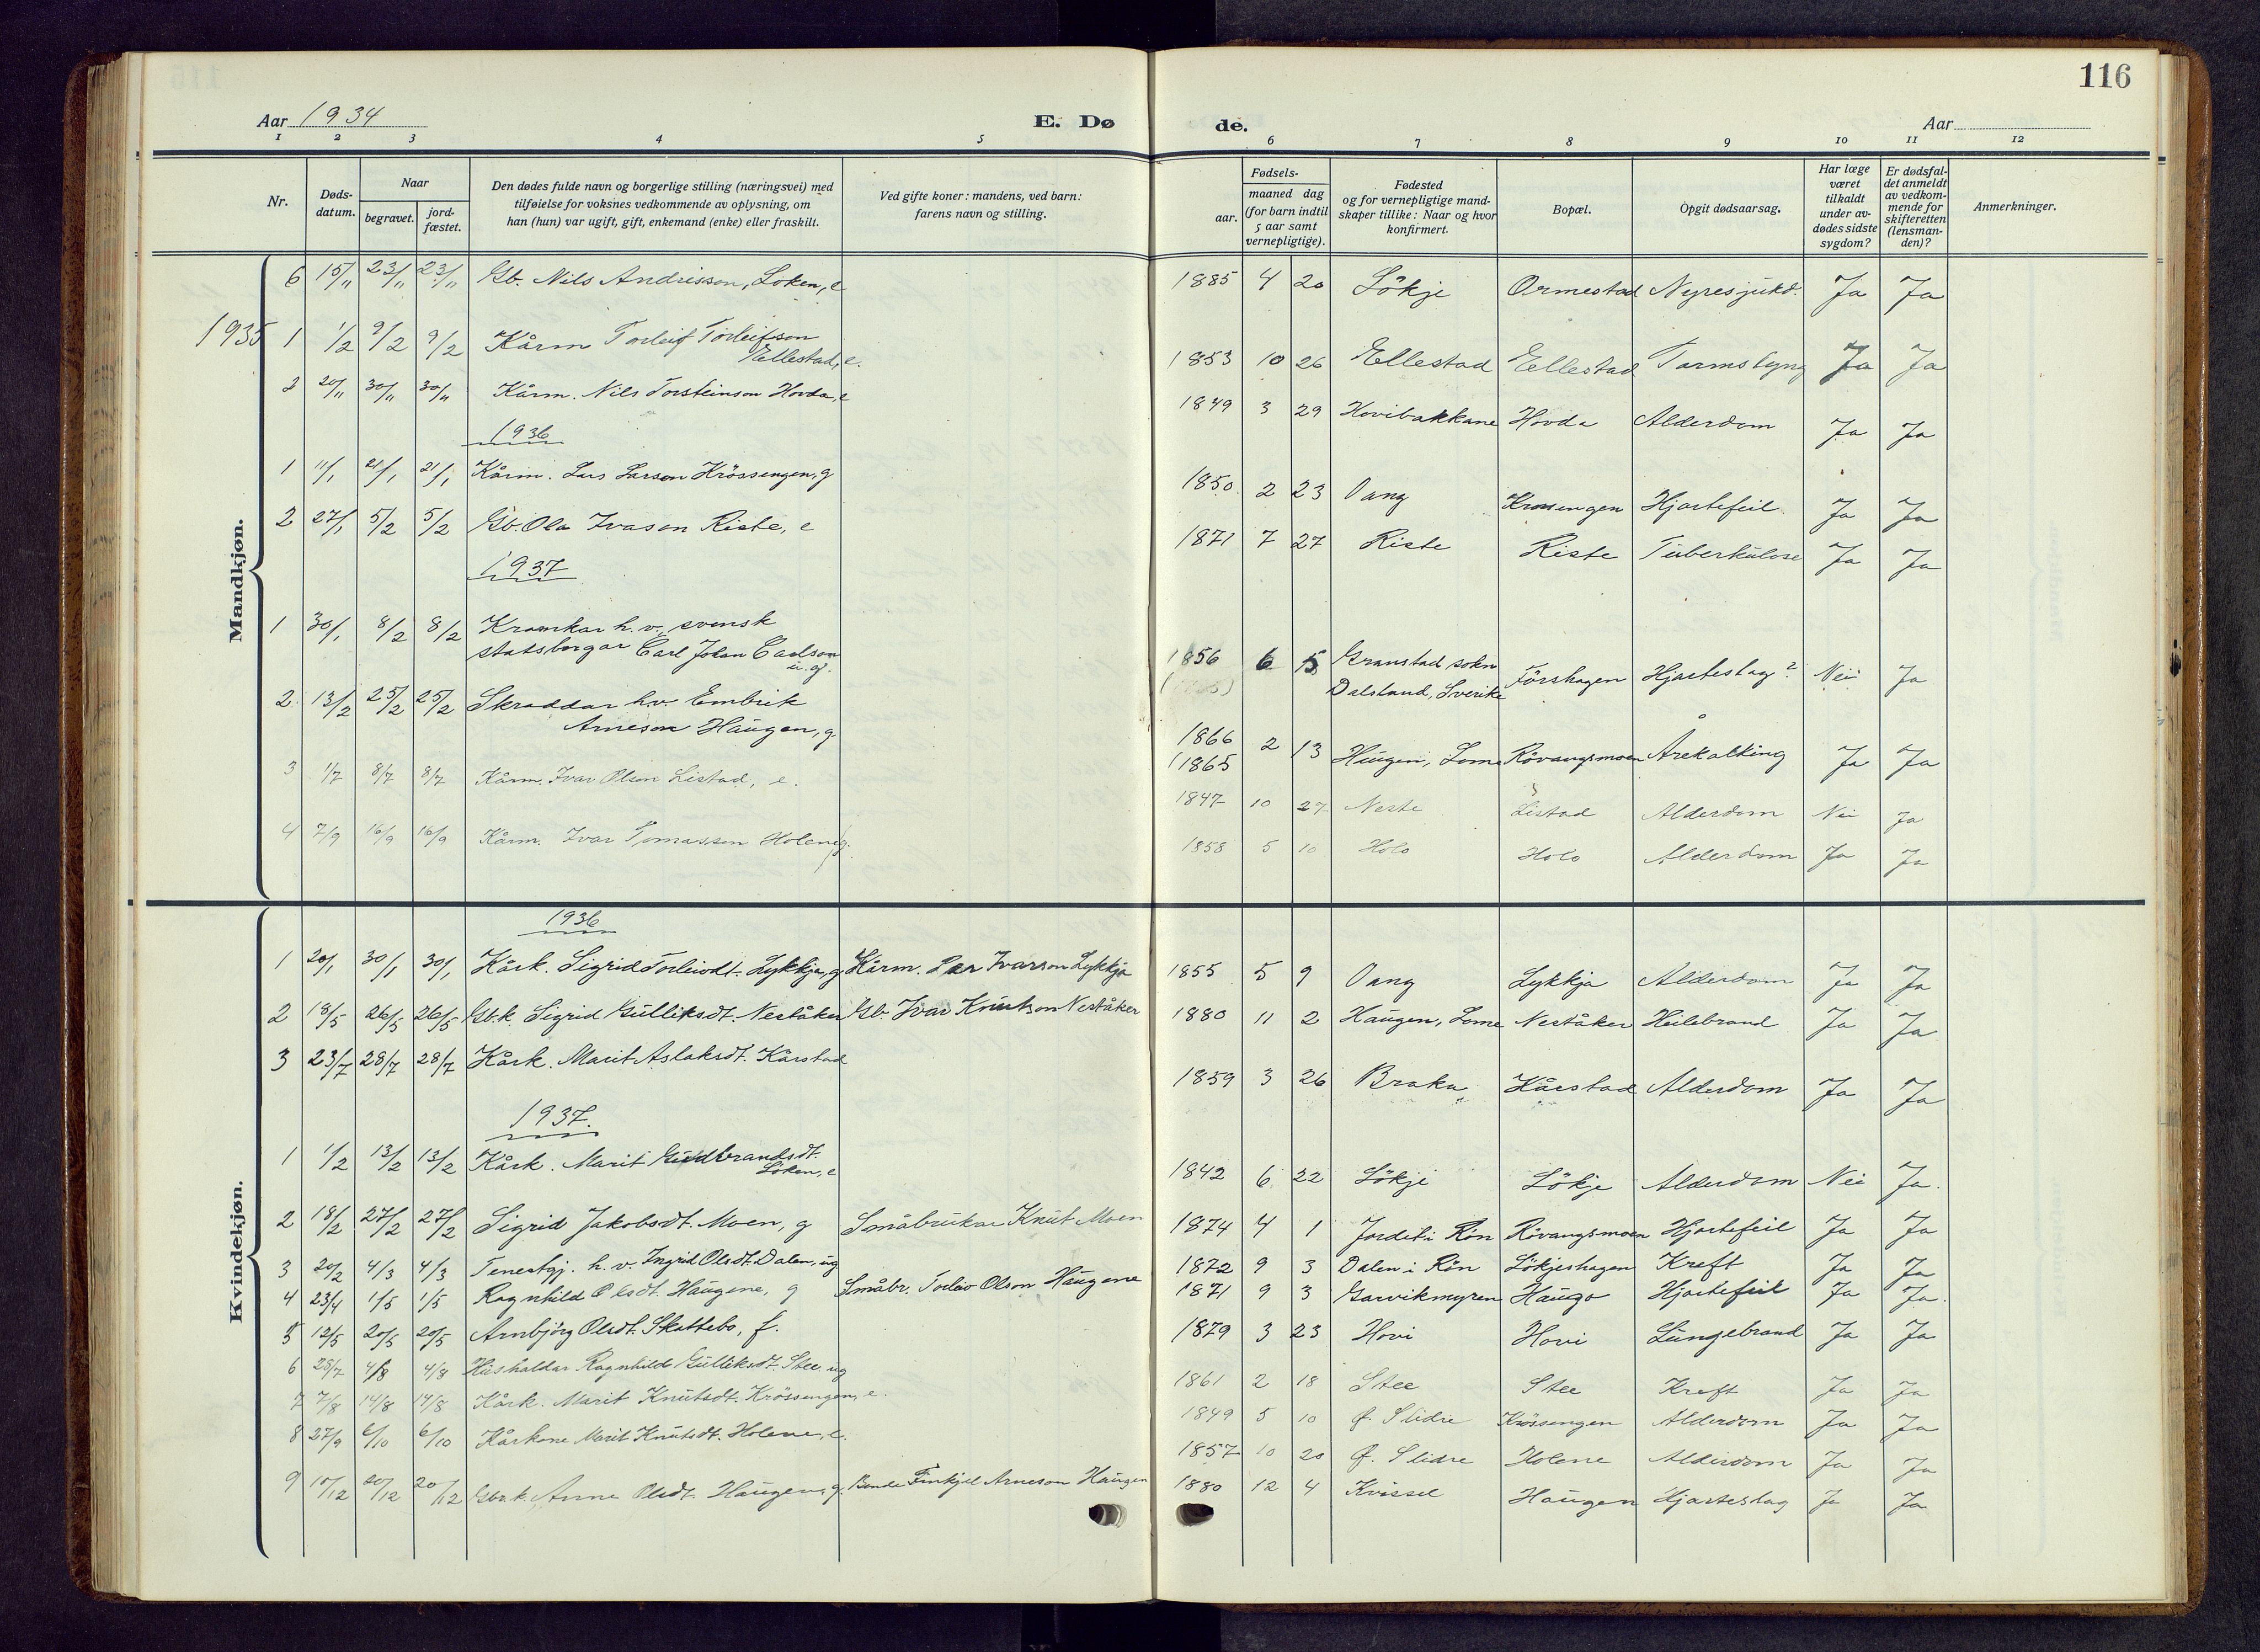 116
Aar 1934 E. Dø de. Aar
1 2 3 4 5 6 7 8 9 10 11 12
Nr. Døds-datum. Naar begravet. jord-fæstet. Den dødes fulde navn og borgerlige stilling (næringsvei) med tilføielse for voksnes vedkommende av oplysning, om han (hun) var ugift, gift, enkemand (enke) eller fraskilt. Ved gifte koner: mandens, ved barn: farens navn og stilling. Fødsels- aar. maaned dag (for barn indtil 5 aar samt vernepligtige). Fødested og for vernepligtige mand-skaper tillike: Naar og hvor konfirmert. Bopæl. Opgit dødsaarsag. Har læge været tilkaldt under av-dødes sidste sygdom? Er dødsfal-det anmeldt av vedkom-mende for skifteretten (lensman-den)? Anmerkninger.
Mandkjøn.
6 15/11 23/11 23/11 Gb. Nils Andrisson, Loken, e 1885 4 20 Lökje Ormestad Nyresjukd. Ja Ja
1935 1 1/2 9/2 9/2 Kårm Torleif Torleifson Ellestad, e. 1853 10 26 Ellestad Ellestad Tarmslyng Ja Ja
2 20/11 30/11 30/11 Kårm. Nils Torsteinson Hovda, e 1849 3 29 Hovibakkane Hovda Alderdom Ja Ja
1936
1 11/1 21/1 21/1 Kårm. Lars Larson Krössengen, g 1850 2 23 Vang Krossengen Hjartefeil Ja Ja
2 27/1 5/2 5/2 Gb. Ola Ivason Riste, e 1871 7 27 Riste Riste Tuberkulose Ja Ja
1937
1 30/1 8/2 8/2 Kramkar h. v., svensk statsborgar Carl Johan Carlson u. g. 1856 6 5 Granstad sokn Dalsland, Sverike Förshagen Hjarteslag? Nei Ja
2 13/2 25/2 25/2 Skraddar h.v. Embrik Arneson Haugen, g. 1866 (1865 2 13 Haugen, Lome Rövangsmoen Årekalking Ja Ja
3 1/7 8/7 8/7 Kårm. Ivar Olson Listad, e. 1847 10 27 Neste Listad Alderdom Nei Ja
4 7/9 16/9 16/9 Kårm. Ivar Tomasson Holen, g. 1858 5 10 Holo Holo Alderdom Ja Ja
Kvindekjøn.
1936
1 20/1 30/1 30/1 Kårk. Sigrid Torleivdt. Lykkja, g Kårm. Lar Ivarson Lykkja 1855 5 9 Vang Lykkja Alderdom Ja Ja
2 18/5 26/5 26/5 Gb.k. Sigrid Gulliksdt. Neståker Gb. Ivar Knutson Neståker 1880 11 2 Haugen, Lome Neståker Heilebrand Ja Ja
3 23/7 28/7 28/7 Kårk. Marit Aslaksdt. Kårstad 1859 3 26 Braka Kårstad Alderdom Ja Ja
1937.
1 1/2 13/2 13/2 Kårk. Marit Gudbrandsdt. Löken, e 1842 6 22 Lökje Lökje Alderdom Nei Ja.
2 18/2 27/2 27/2 Sigrid Jakobsdt. Moen, g Småbrukar Knut Moen 1874 4 1 Jordet i Røn Rövangsmoen Hjartefeil Ja Ja
3 20/2 4/3 4/3 Tenestgj. h. v. Ingrid Olsdt. Dalen, ug 1872 9 3 Dalen i Røn Lökjeshagen Kreft Ja Ja
4 23/4 1/5 1/5 Ragnhild Olsdt. Haugene, g Småbr. Torleiv Olson Haugene 1871 9 3 Garvikmyren Haugo Hjartefeil Ja Ja.
5 12/5 20/5 20/5 Arnbjörg Olsdt. Skattebo, f. 1879 3 23 Hovi Hovi Lungebrand Ja Ja
6 28/7 4/8 4/8 Hushaldar Ragnhild Gulliksdt. Stee ug 1861 2 18 Stee Stee Kreft Ja Ja
7 7/8 14/8 14/8 Kårk. Marit Knutsdt. Krössengen, e. 1849 5 10 Ø. Slidre Krössengen Alderdom Ja Ja
8 27/9 6/10 6/10 Kårkone Marit Knutsdt. Holene, e. 1857 10 20 Ø. Slidre Holene Alderdom Ja Ja
9 10/12 20/12 20/12 Gb.k. Anne Olsdt. Haugen, g. Bonde Finkjel Arneson Haugen 1880 12 4 Kvissel Haugen Hjarteslag Ja Ja